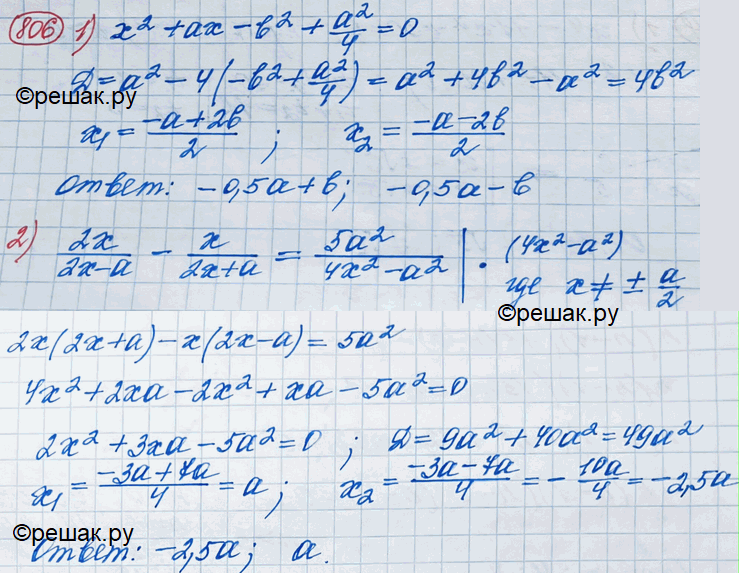 806 1) x² + ax − b² + a²/4 = 0
D = a² − 4(−b² + a²/4) = a² + 4b² − a² = 4b²
©решак.ру
x₁ = (−a + 2b)/2 ; x₂ = (−a − 2b)/2
Ответ: −0,5a + b; −0,5a − b
2) 2x/(2x−a) − x/(2x+a) = 5a²/(4x²−a²) | · (4x²−a²)
где x ≠ ± a/2
©решак.ру
2x(2x+a) − x(2x−a) = 5a²
4x² + 2xa − 2x² + xa − 5a² = 0
2x² + 3xa − 5a² = 0 ; D = 9a² + 40a² = 49a²
x₁ = (−3a + 7a)/4 = a ; x₂ = (−3a − 7a)/4 = − 10a/4 = −2,5a
©решак.ру
Ответ: −2,5a; a.